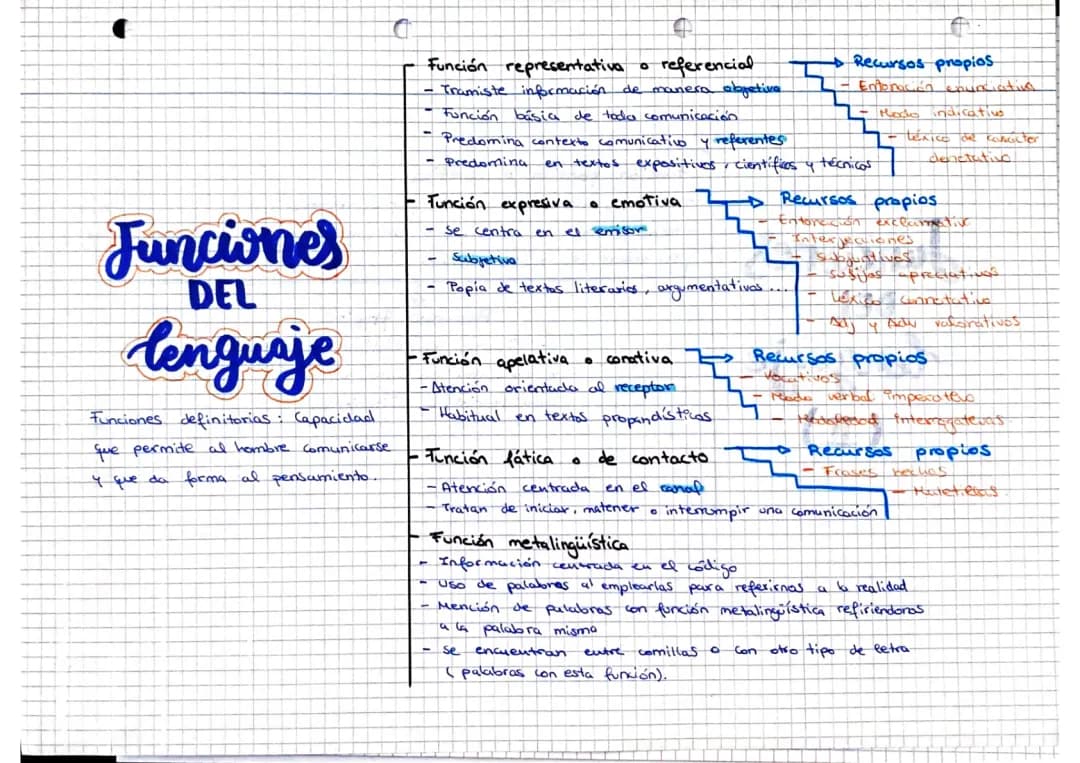 Funciones
DEL
lenguaje
Funciones definitorias: Capacidad
que permite al hombre comunicarse
y que da forma al pensamiento.
Función representativa o referencial
- Tramiste información de manera objetiva
- Función básica de toda comunicación
- Predomina contexto comunicativo y referentes
- Predomina en textos expositivos, científicos y técnicos
Recursos propios
- Entonación enunciativa
- Modo indicativo
- Léxico de carácter
denotativo
Función expresiva o emotiva
- Se centra en el emisor
- Subjetiva
- Popia de textos literarios, argumentativos...
Recursos propios
- Entonación exclamativa
- Interjecciones
- Subjuntivos
- Sufijos apreciativos
- Léxico connotativo
- Adj y Adv valorativos
Función apelativa o conativa
- Atención orientada al receptor
- Habitual en textos propandísticos
Recursos propios
- Vocativos
- Modo verbal imperativo
- interrogativas
Función fática o de contacto
- Atención centrada en el canal
- Tratan de iniciar, matener o interrumpir una comunicación
Recursos propios
- Frases hechas
- Muletillas
Función metalingüística
- Información centrada en el código
- Uso de palabras al emplearlas para referirnos a la realidad
- Mención de palabras con función metalingüística refiriendonos
a la palabra misma
- Se encuentran entre comillas o con otro tipo de letra
(palabras con esta función).